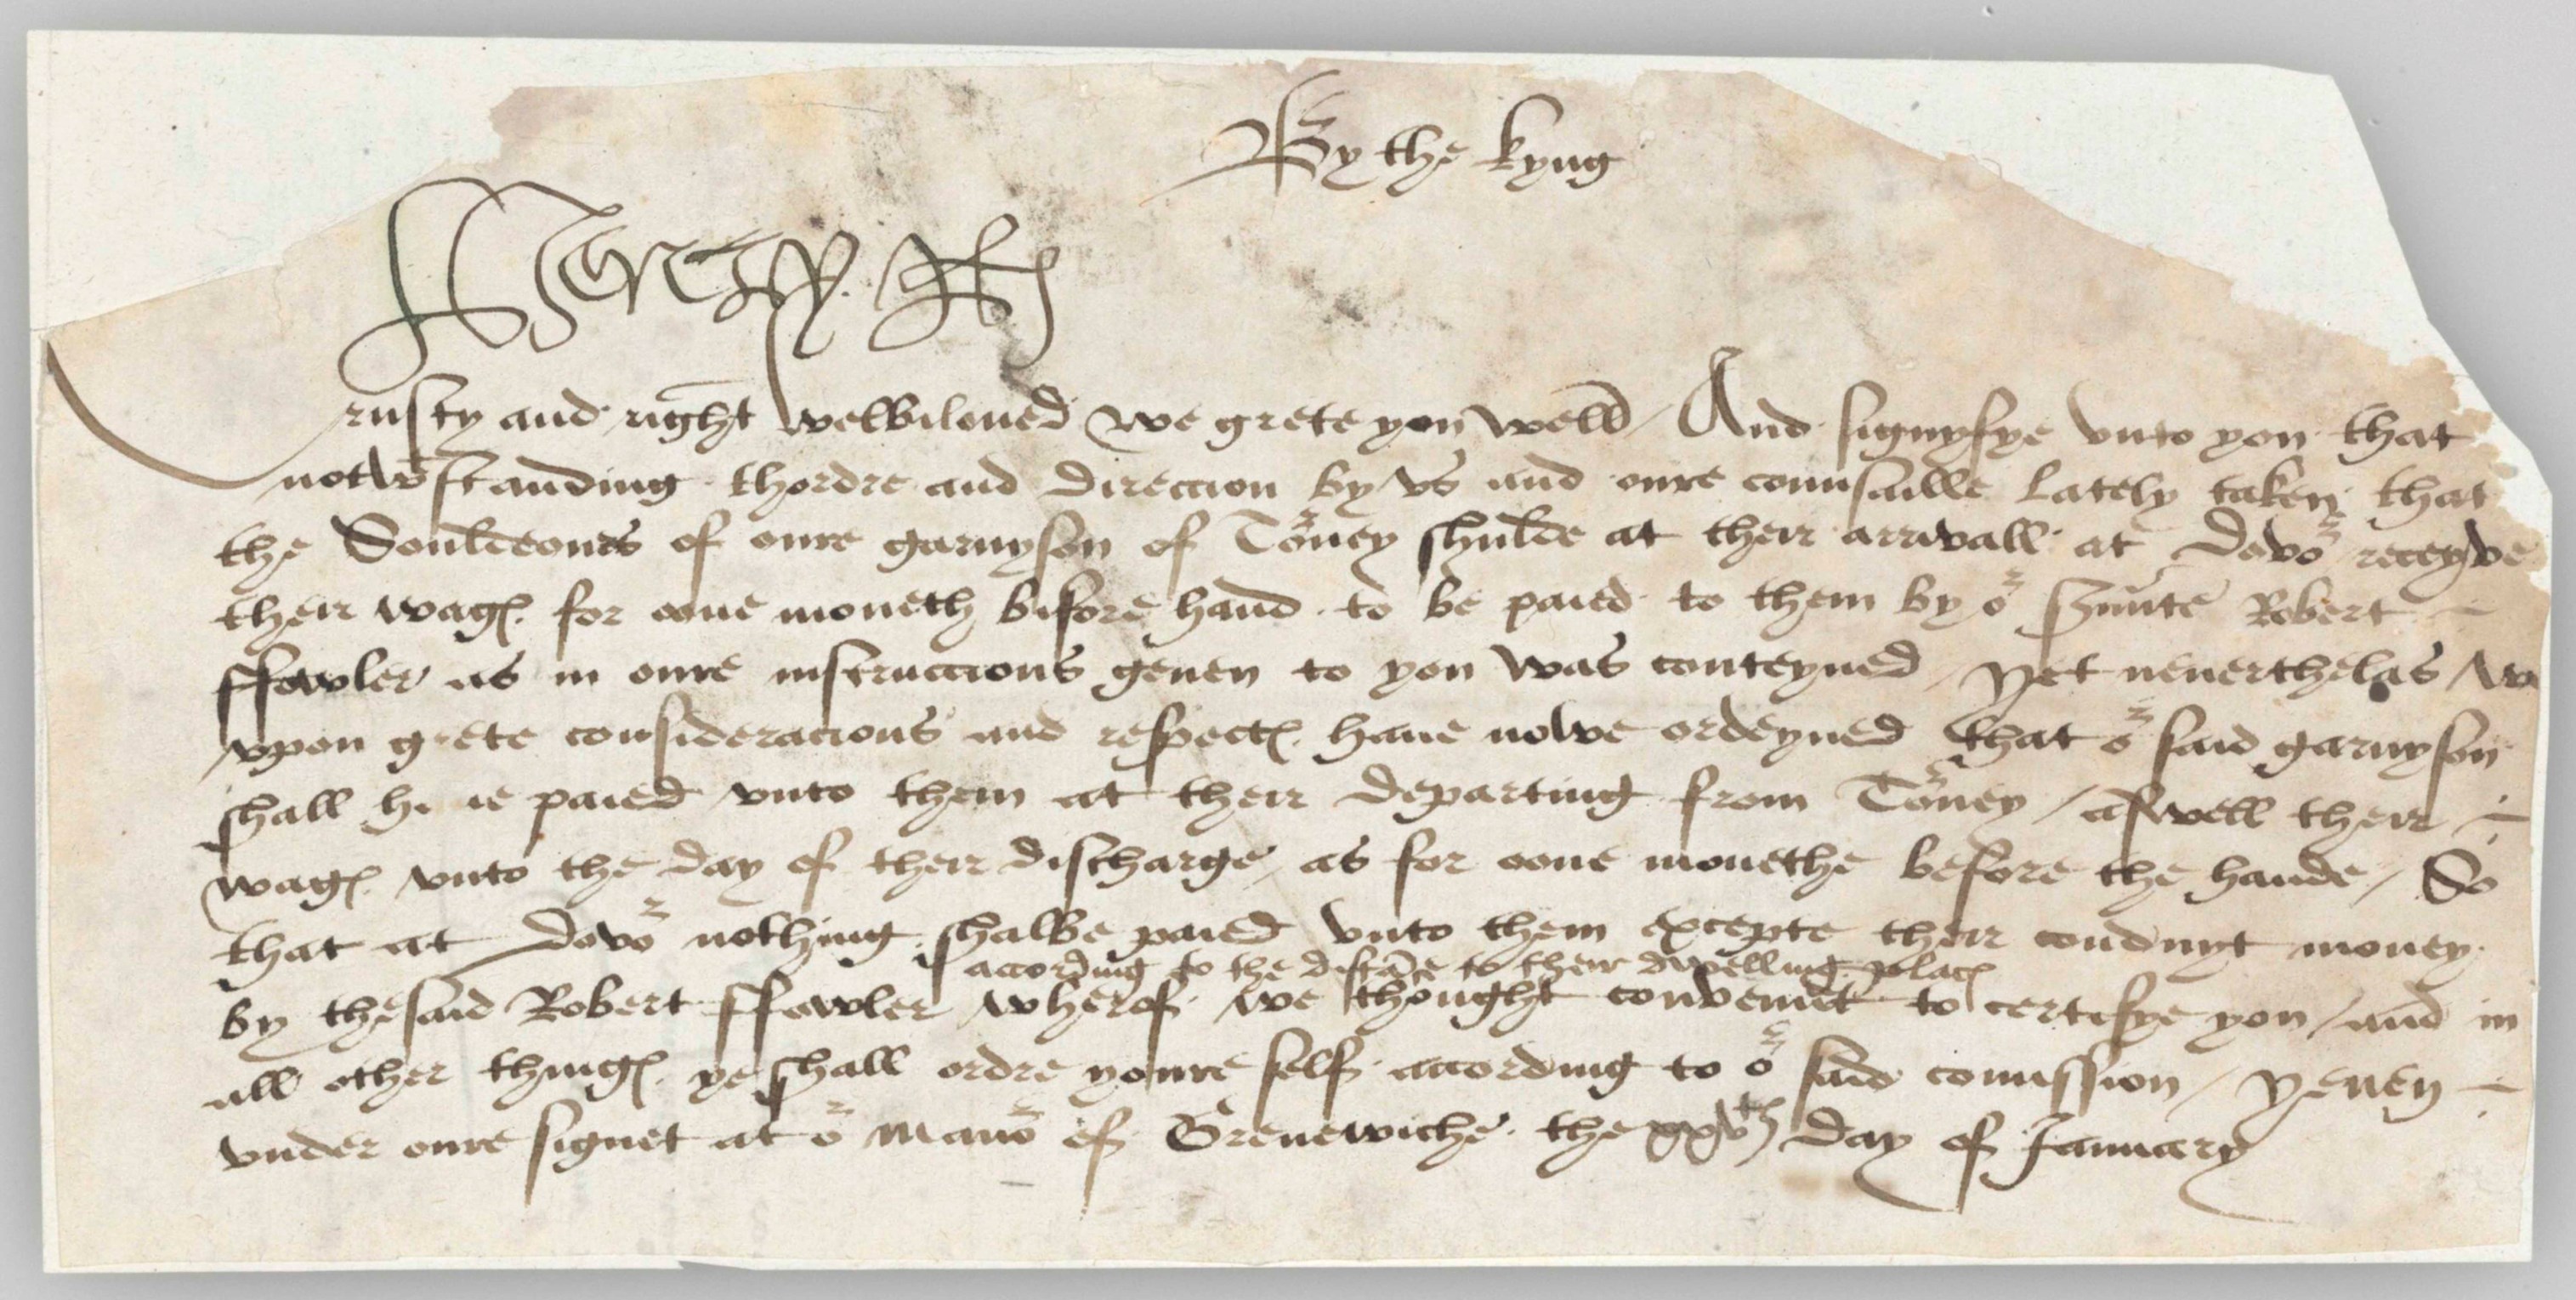 By the kyng
Henry R
Trusty and right welbiloued we grete you well / And signyfye vnto you that
notwtstanding thordre and direccion by vs and oure counsaille lately taken that
the Souldeours of oure garnyson of Torney shulde at their arrivall at Dovor receyve
their wages for oone moneth bifore hand to be paied to them by or sruunte Robert
ffowler as in oure instruccions geuen to you was conteyned / Yet neuerthelas we
vpon grete consideracions and respectes haue nowe ordeyned that or said garnyson
shall haue paied vnto them at their departing from Torney / aswell their
wages vnto the day of their discharge / as for oone monethe before the hande / So
that at Dovor nothing shalbe paied vnto them excepte their conduyt money
according to the distance to their dwelling places
by thesaid Robert ffowler wherof we thought convenient to certefye you / and in
all other thinges ye shall ordre youre self according to or said comission / Yeuen
vnder oure signet at or Manor of Grenewiche the xxvth day of January